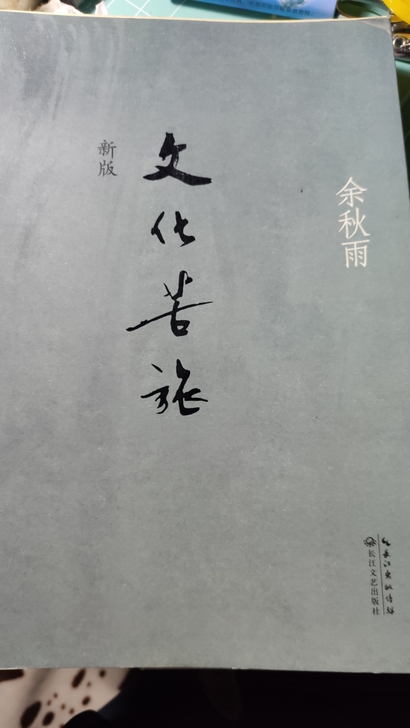 余秋雨
新版
文化苦旅
长江出版传媒
长江文艺出版社